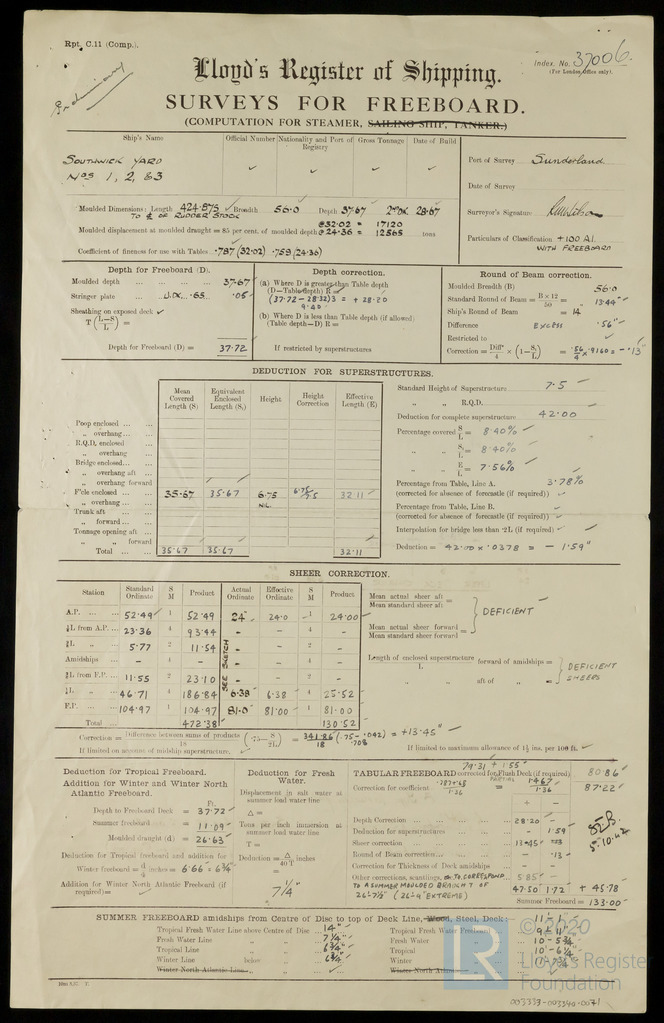 Rpt. C.11 (Comp.).
Index. No. 37006.
(For London Office only).
Lloyd's Register of Shipping.
SURVEYS FOR FREEBOARD.
(COMPUTATION FOR STEAMER, SAILING SHIP, TANKER.)
Ship's Name
Official Number
Nationality and Port of Registry
Gross Tonnage
Date of Build
SOUTHWICK YARD
Nos 1, 2, & 3
Port of Survey Sunderland
Date of Survey
Surveyor's Signature
Particulars of Classification +100 A1.
WITH FREEBOARD
Moulded Dimensions: Length 424.875 Breadth 56.0 Depth 37.67 2nd DK 28.67
TO ℄ OF RUDDER STOCK
Moulded displacement at moulded draught = 85 per cent. of moulded depth @ 32.02 = 17120
@ 24.36 = 12565 tons
Coefficient of fineness for use with Tables .787 (32.02) .759 (24.36)
Depth for Freeboard (D).
Moulded depth ... 37.67
Stringer plate ... U.DK. .65 .05
Sheathing on exposed deck
T (L-S/L) =
Depth for Freeboard (D) = 37.72
Depth correction.
(a) Where D is greater than Table depth
(D-Table depth) R =
(37.72 - 28.32) 3 = + 28.20
9.40
(b) Where D is less than Table depth (if allowed)
(Table depth-D) R =
If restricted by superstructures
Round of Beam correction.
Moulded Breadth (B) 56.0
Standard Round of Beam = B × 12/50 = 13.44"
Ship's Round of Beam = 14
Difference EXCESS .56"
Restricted to
Correction = Diff/4 × (1 - S1/L) = .56/4 × .9160 = - .13"
DEDUCTION FOR SUPERSTRUCTURES.
Mean Covered Length (S)
Equivalent Enclosed Length (S1)
Height
Height Correction
Effective Length (E)
Poop enclosed
" overhang
R.Q.D. enclosed
" overhang
Bridge enclosed
" overhang aft
" overhang forward
F'cle enclosed 35.67 35.67 6.75 6.75/7.5 32.11
" overhang NIL.
Trunk aft
" forward
Tonnage opening aft
" " forward
Total 35.67 35.67 32.11
Standard Height of Superstructure 7.5
" " R.Q.D.
Deduction for complete superstructure 42.00
Percentage covered S/L = 8.40%
" " S1/L = 8.40%
" " E/L = 7.56%
Percentage from Table, Line A. 3.78%
(corrected for absence of forecastle (if required))
Percentage from Table, Line B.
(corrected for absence of forecastle (if required))
Interpolation for bridge less than .2L (if required)
Deduction = 42.00 × .0378 = - 1.59"
SHEER CORRECTION.
Station
Standard Ordinate
S M
Product
Actual Ordinate
Effective Ordinate
S M
Product
A.P. 52.49 1 52.49 24" 24.0 1 24.00
⅙L from A.P. 23.36 4 93.44 - - 4 -
⅓L " 5.77 2 11.54 - - 2 -
Amidships - 4 - - - 4 -
⅓L from F.P. 11.55 2 23.10 - - 2 -
⅙L " 46.71 4 186.84 6.38 6.38 4 25.52
F.P. 104.97 1 104.97 81.0 81.00 1 81.00
Total 472.38 130.52
SEE SKETCH
Mean actual sheer aft
Mean standard sheer aft =
Mean actual sheer forward
Mean standard sheer forward =
DEFICIENT
Length of enclosed superstructure/L forward of amidships =
" " aft of " =
DEFICIENT SHEERS
Correction = Difference between sums of products/18 (.75 - S/2L) = 341.86/18 (.75 - .042) = +13.45"
.708
If limited on account of midship superstructure.
If limited to maximum allowance of 1½ ins. per 100 ft.
Deduction for Tropical Freeboard.
Addition for Winter and Winter North Atlantic Freeboard.
Ft.
Depth to Freeboard Deck = 37.72
Summer freeboard = 11.09
Moulded draught (d) = 26.63
Deduction for Tropical freeboard and addition for
Winter freeboard = d/4 inches = 6.66 = 6¾"
Addition for Winter North Atlantic Freeboard (if required) =
Deduction for Fresh Water.
Displacement in salt water at summer load water line
Δ =
Tons per inch immersion at summer load water line
T =
Deduction = Δ/40T inches
=
7¼"
79.31 + 1.55
TABULAR FREEBOARD corrected for Flush Deck (if required) 80.86
PARTIAL
Correction for coefficient .787+.68/1.36 1.467/1.36 87.22
+ -
Depth Correction 28.20
Deduction for superstructures - 1.59
Sheer correction 13.45
Round of Beam correction - .13
Correction for Thickness of Deck amidships
Other corrections, scantlings, &c. TO CORRESPOND 5.85 -
TO A SUMMER MOULDED DRAUGHT OF 47.50 1.72 + 45.78
26'-7½" (26'-9" EXTREME)
Summer Freeboard = 133.00
5.10.42
SUMMER FREEBOARD amidships from Centre of Disc to top of Deck Line, Wood, Steel, Deck: 11'-1"
Tropical Fresh Water Line above Centre of Disc 14"
Fresh Water Line " " 7¼"
Tropical Line " " 6¾"
Winter Line below " 6¾"
Winter North Atlantic Line "
Tropical Fresh Water Freeboard 9-11"
Fresh Water " 10-5¾
Tropical " 10-6¼
Winter "
Winter North Atlantic "
© 2020
LR
Lloyd's Register
Foundation
003333-003340-0071